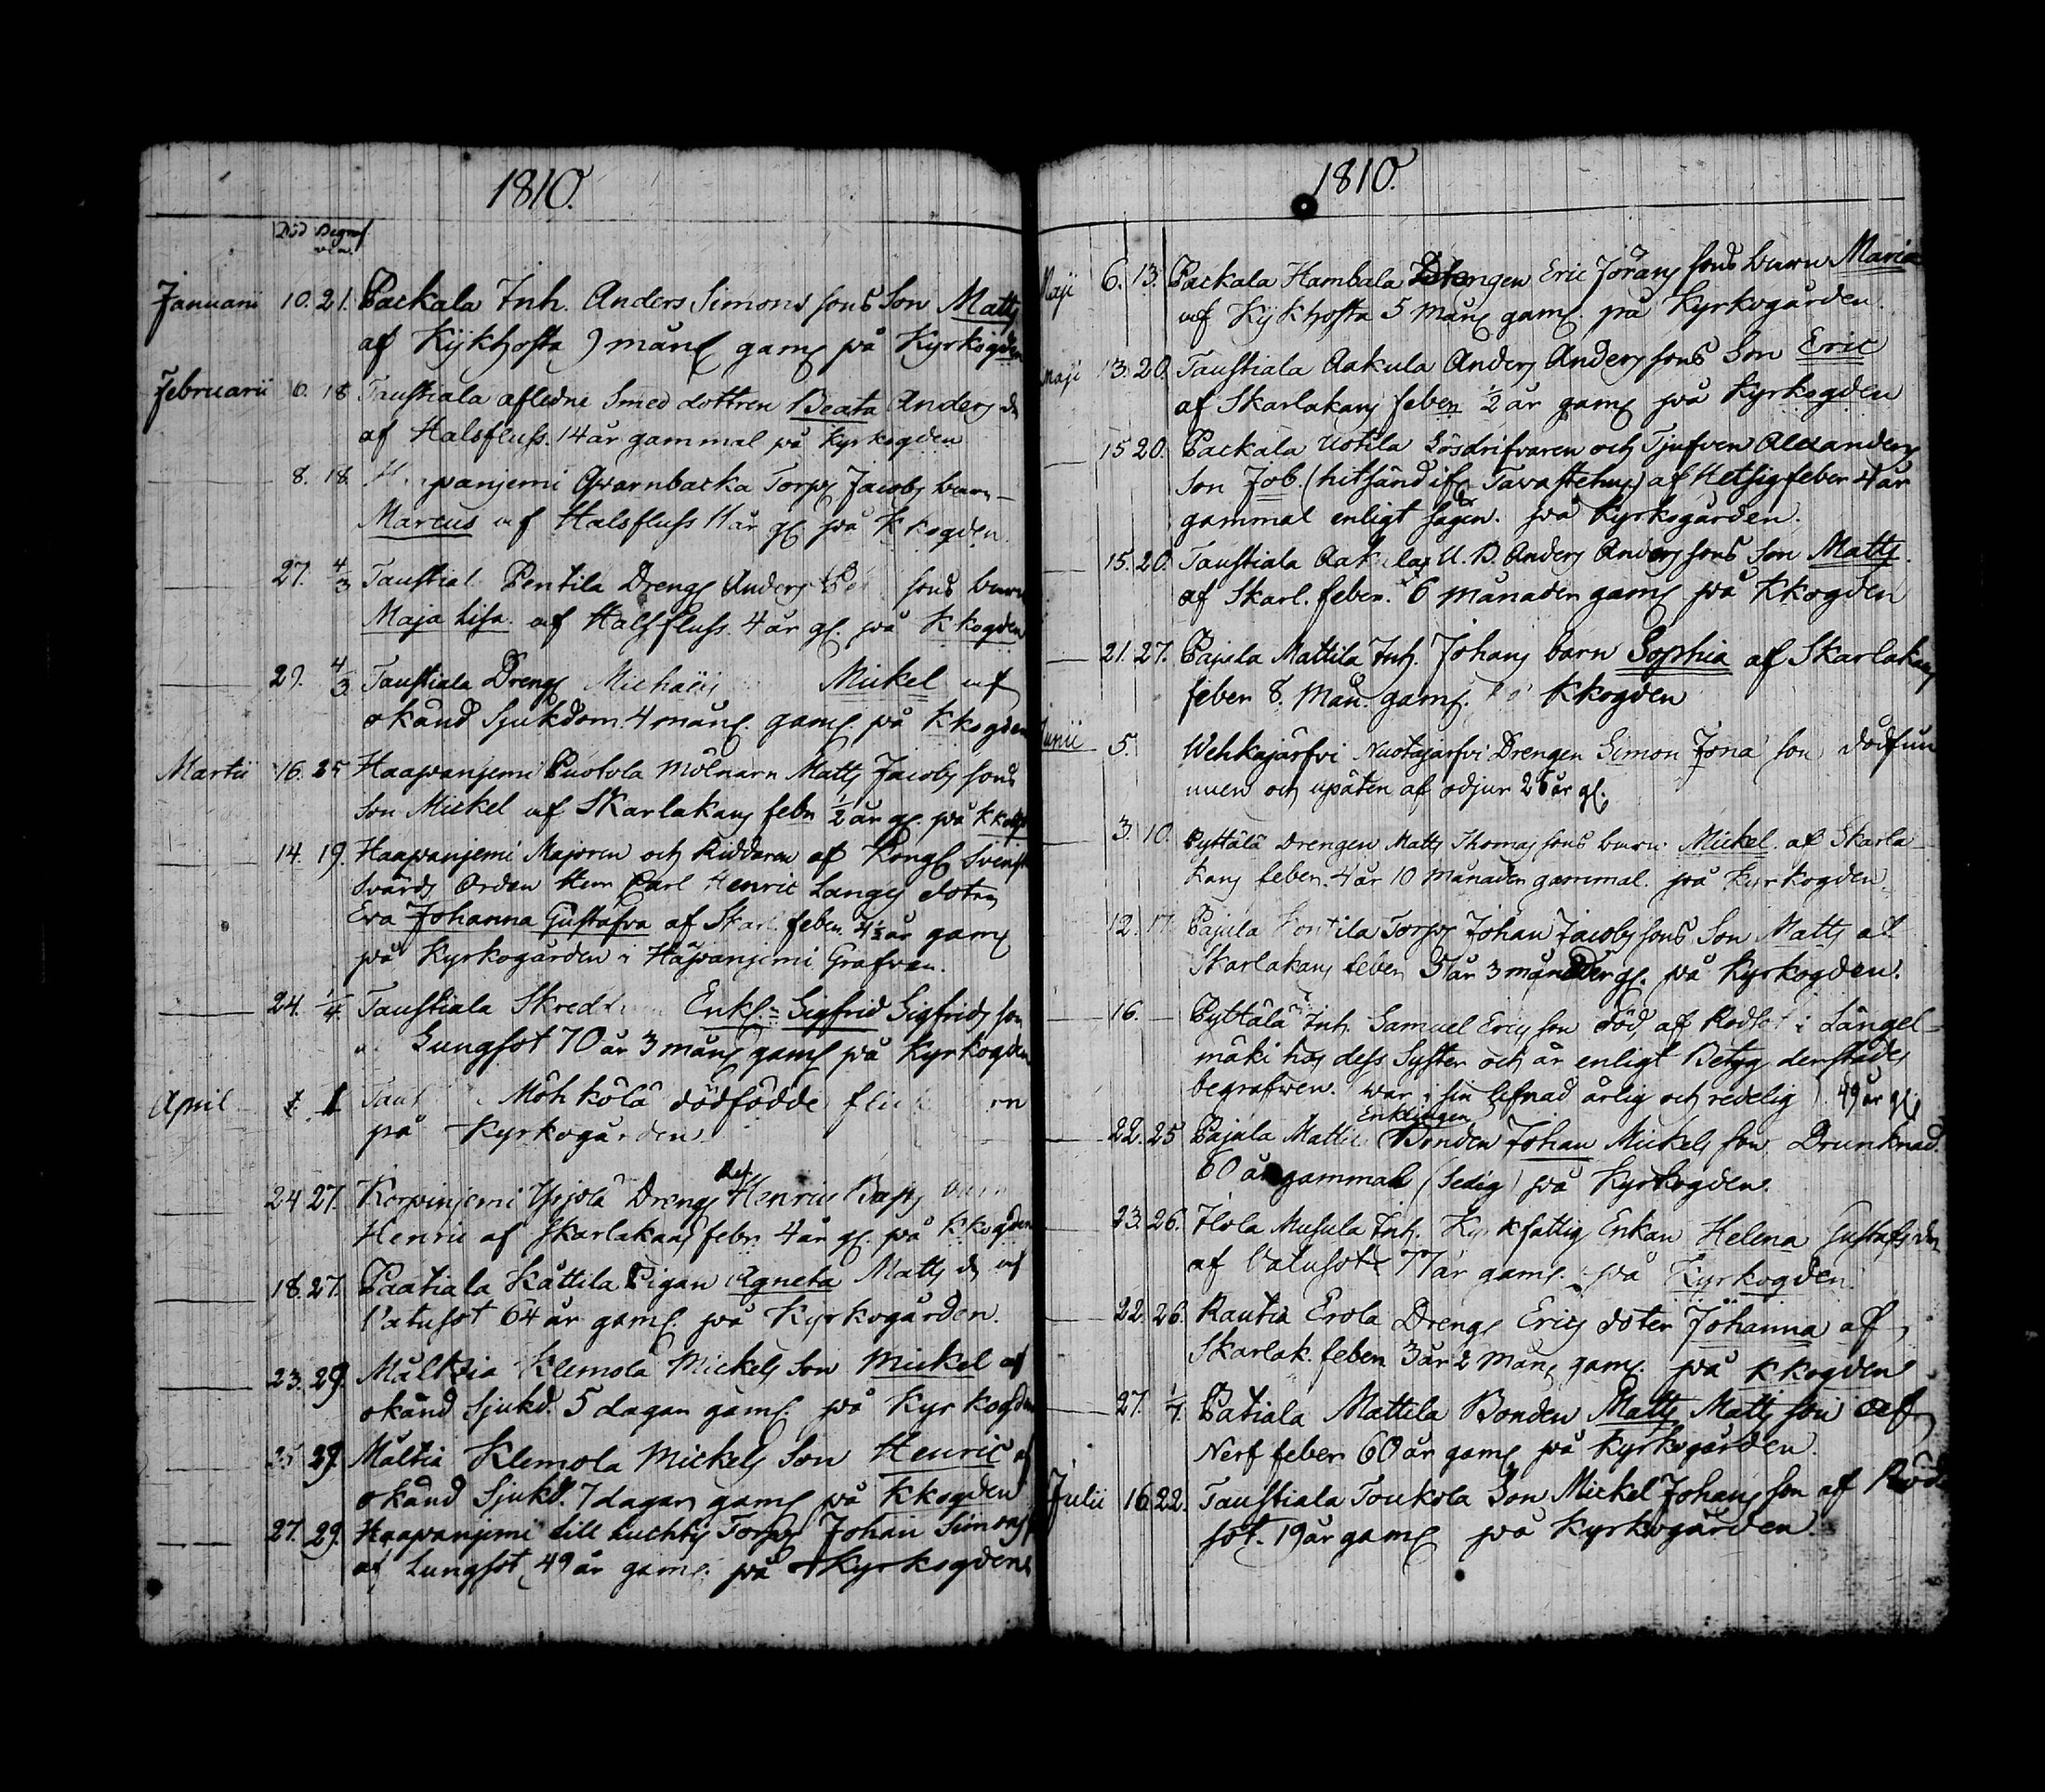 1810.
Död Begraf
ven.
Januarii 10. 21. Packala Inh. Anders Simons sons Son Matts
af Kijkhosta 9 mån gaml på Kyrkogden
Februarii 6. 18 Taustiala afledne Smed dottren Beata Anders d
af Halsfluss. 14 år gammal på Kyrkogden
8. 18. panjemi Qvarnbacka Torp Jacobs barn
Marcus af Halsfluss 11 år gl på Kkogden.
27. 4/3 Taustial Pentila Dreng Anders sons barn
Maja Lisa. af Halsfluss. 4 år gl. på Kkogden
29. 4/3 Taustiala Dreng Michaels Mickel af
okänd Sjukdom 4 mån. gaml på Kkogden
Martii 16. 25 Haapanjemi Puotola Mölnarn Matts Jacobs sons
Son Mickel af Skarlakans febr 1/2 år gl. på Kkogd
14. 19. Haapanjemi Majoren och Riddaren af Kongl Svensk
Svärds Orden Herr Carl Henric Langs dotren
Eva Johanna Gustafva af Skarl feber. 4 1/2 år gaml
på Kyrkogården i Haapanjemi Grafven.
24. 1/4. Taustiala Skred Enkl. Sigfrid Sigfrids son
Lungsot 70 år 3 mån gaml på Kyrkogden
April 1. 1 Taus Möhkölä dödfödde fli
på Kyrkogården.
24 27. Korpinjemi Yrjölä Dreng Henric Bast barn
Henric af Skarlakans febr. 4 år gl. på Kkogden
18. 27. Paatiala Kåttila Pigan Agneta Matts d af
Vatusot 64 år gaml. på Kyrkogården.
23. 29. Måltia Klemola Mickels Son Mickel af
okänd Sjukd. 5 dagar gaml. på Kyrkogden
25 29. Måltia Klemola Mickels Son Henric af
okänd Sjukd. 7 dagar gaml på Kkogden
27. 29. Haapanjemi Torp Johan Simons
af Lungsot 49 år gaml. på Kyrkogden
1810.
Maji 6. 13. Packala Hambala Drengen Eric Jörans sons barn Maria
af Kijkhosta 5 mån gaml. på Kyrkogården.
Maji 13. 20. Taustiala Aakula Anders Anders sons Son Eric
af Skarlakans feber 1/2 år gaml på Kyrkogden
15 20. Packala Uotila Lösdrifvaren och Tjufven Alexanders
Son Job. (hitsänd ifr Tavastehus) af Hetsigfeber 4 år
gammal enligt sägen. på Kyrkogården.
15. 20. Taustiala Aakulax U. B. Anders Anders sons Son Matts.
af Skarl. feber. 6 månader gaml på Kkogden
21. 27. Pajula Mattila Inh. Johans barn Sophia af Skarlakans
feber 8. Mån. gaml. på Kkogden
Junii 5. Wehkajärfvi Nuotajarfvi Drengen Simon Jona son dödfun
nuen och upäten af odjur 25 år gl.
3. 10. Pyttälä Drengen Matts Thomas sons barn Mickel. af Skarla
kans feber. 4 år 10 Månader gammal. på Kyrkogden.
12. 17 Pajula Torp Johan Jacobs sons Son Matts af
Skarlakans feber 5 år 3 månader gl. på Kyrkogden.
16. Pyttälä Inh. Samuel Erics son död af Rödsot i Längel-
mäki hos dess Syster och är enligt Betyg derstädes
begrafven. war i sin lefnad ärlig och redelig). 49 år gl.
Enklingen
22. 25 Pajala Mattila Bonden Johan Mickels son Drunknad.
60 år gammal (Sedig) på Kyrkogden.
23. 26. Ilola Musula Inh. Kyrkfattig Enkan Helena Gustafs dr
af Vatusot 77 år gaml. på Kyrkogden.
22. 26. Rautia Erola Dreng Erics doter Johanna af
Skarlak. feber 3 år 2 Mån, gaml. på Kkogden
27. 1/7. Patiala Mattila Bonden Matts Matts son af
Nerf feber 60 år gaml på Kyrkogården.
Julii 16 22. Taustiala Toukola Son Mickel Johans son af Röd
sot. 19 år gaml på Kyrkogården.